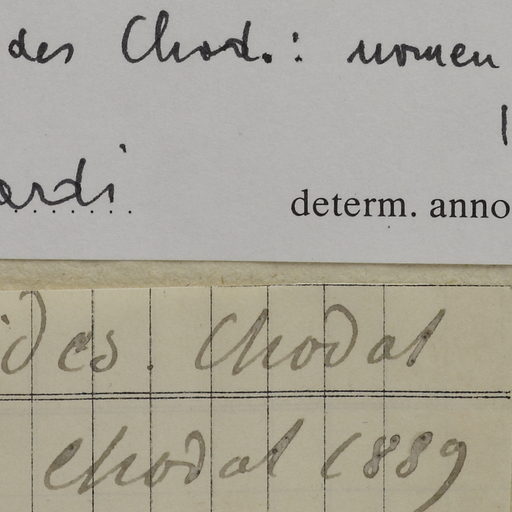 des Chod.: nomen
ardi
determ. anno
ides. Chodat
Chodat 1889